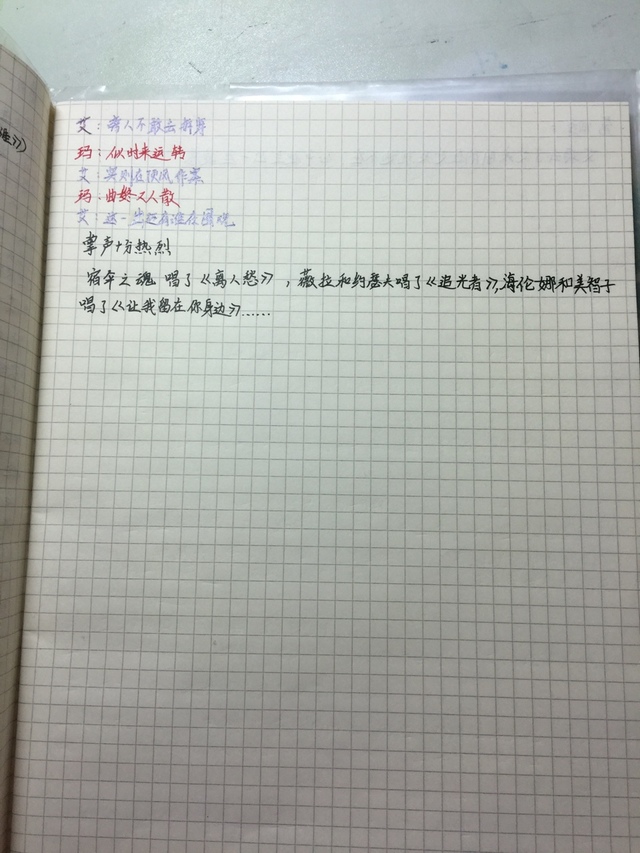 难》》
艾:旁人不敢去拆穿
玛:似时来运转
艾:实则在顶风作案
玛:曲终又人散
艾:这一出还有谁在围观
掌声十分热烈
宿伞之魂 唱了《离人愁》,薇拉和约瑟夫唱了《追光者》,海伦娜和美智子
唱了《让我留在你身边》……